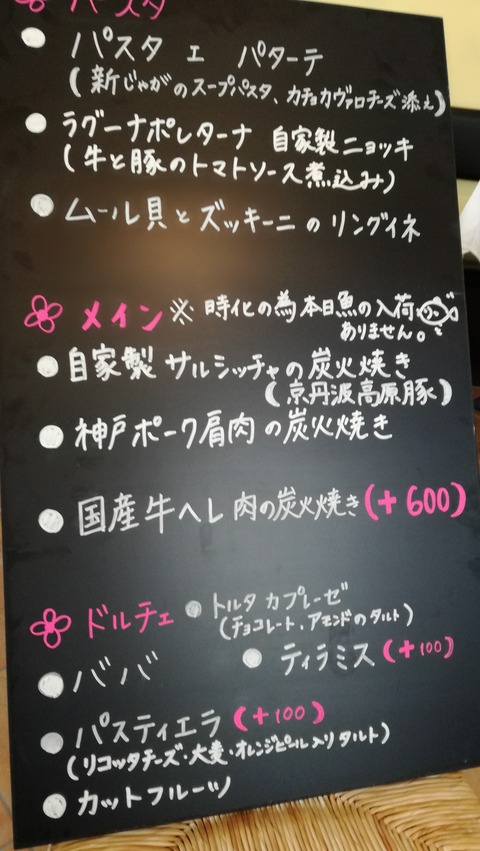 パスタ
パスタ エ パターテ
(新じゃがのスープパスタ、カチョカヴァロチーズ添え)
ラグーナポレターナ 自家製ニョッキ
(牛と豚のトマトソース煮込み)
ムール貝とズッキーニのリングイネ
メイン ※時化の為本日魚の入荷
ありません。
自家製 サルシッチャの炭火焼き
(京丹波高原豚)
神戸ポーク肩肉の炭火焼き
国産牛ヘレ肉の炭火焼き(+600)
ドルチェ
トルタ カプレーゼ
(チョコレート、アモンドのタルト)
ババ
ティラミス(+100)
パスティエラ(+100)
(リコッタチーズ・大麦・オレンジピール入りタルト)
カットフルーツ